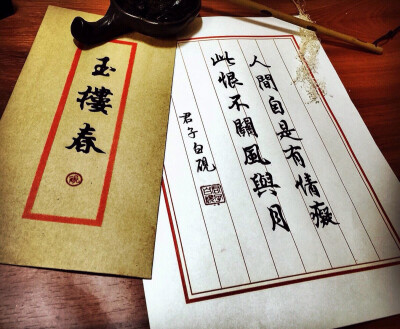 玉樓春
硯
人間自是有情癡
此恨不關風與月
君子白硯